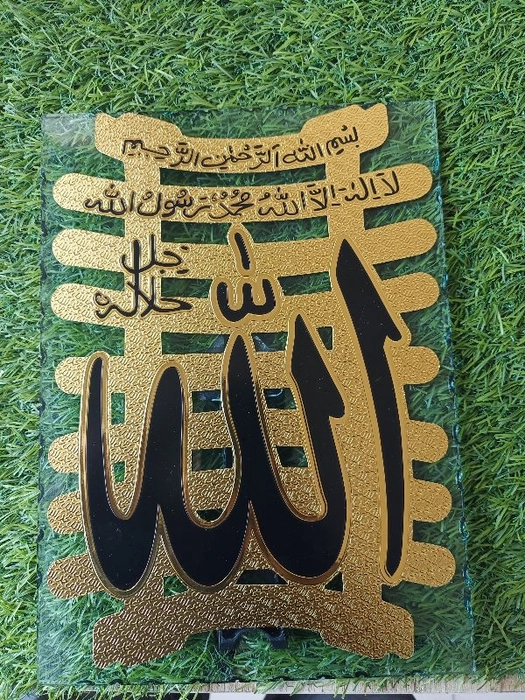 بِسْمِ اللهِ الرَّحْمٰنِ الرَّحِيمِ
لَا اِلٰهَ اِلَّا اللهُ مُحَمَّدٌ رَسُولُ الله
جل
جلاله
الله